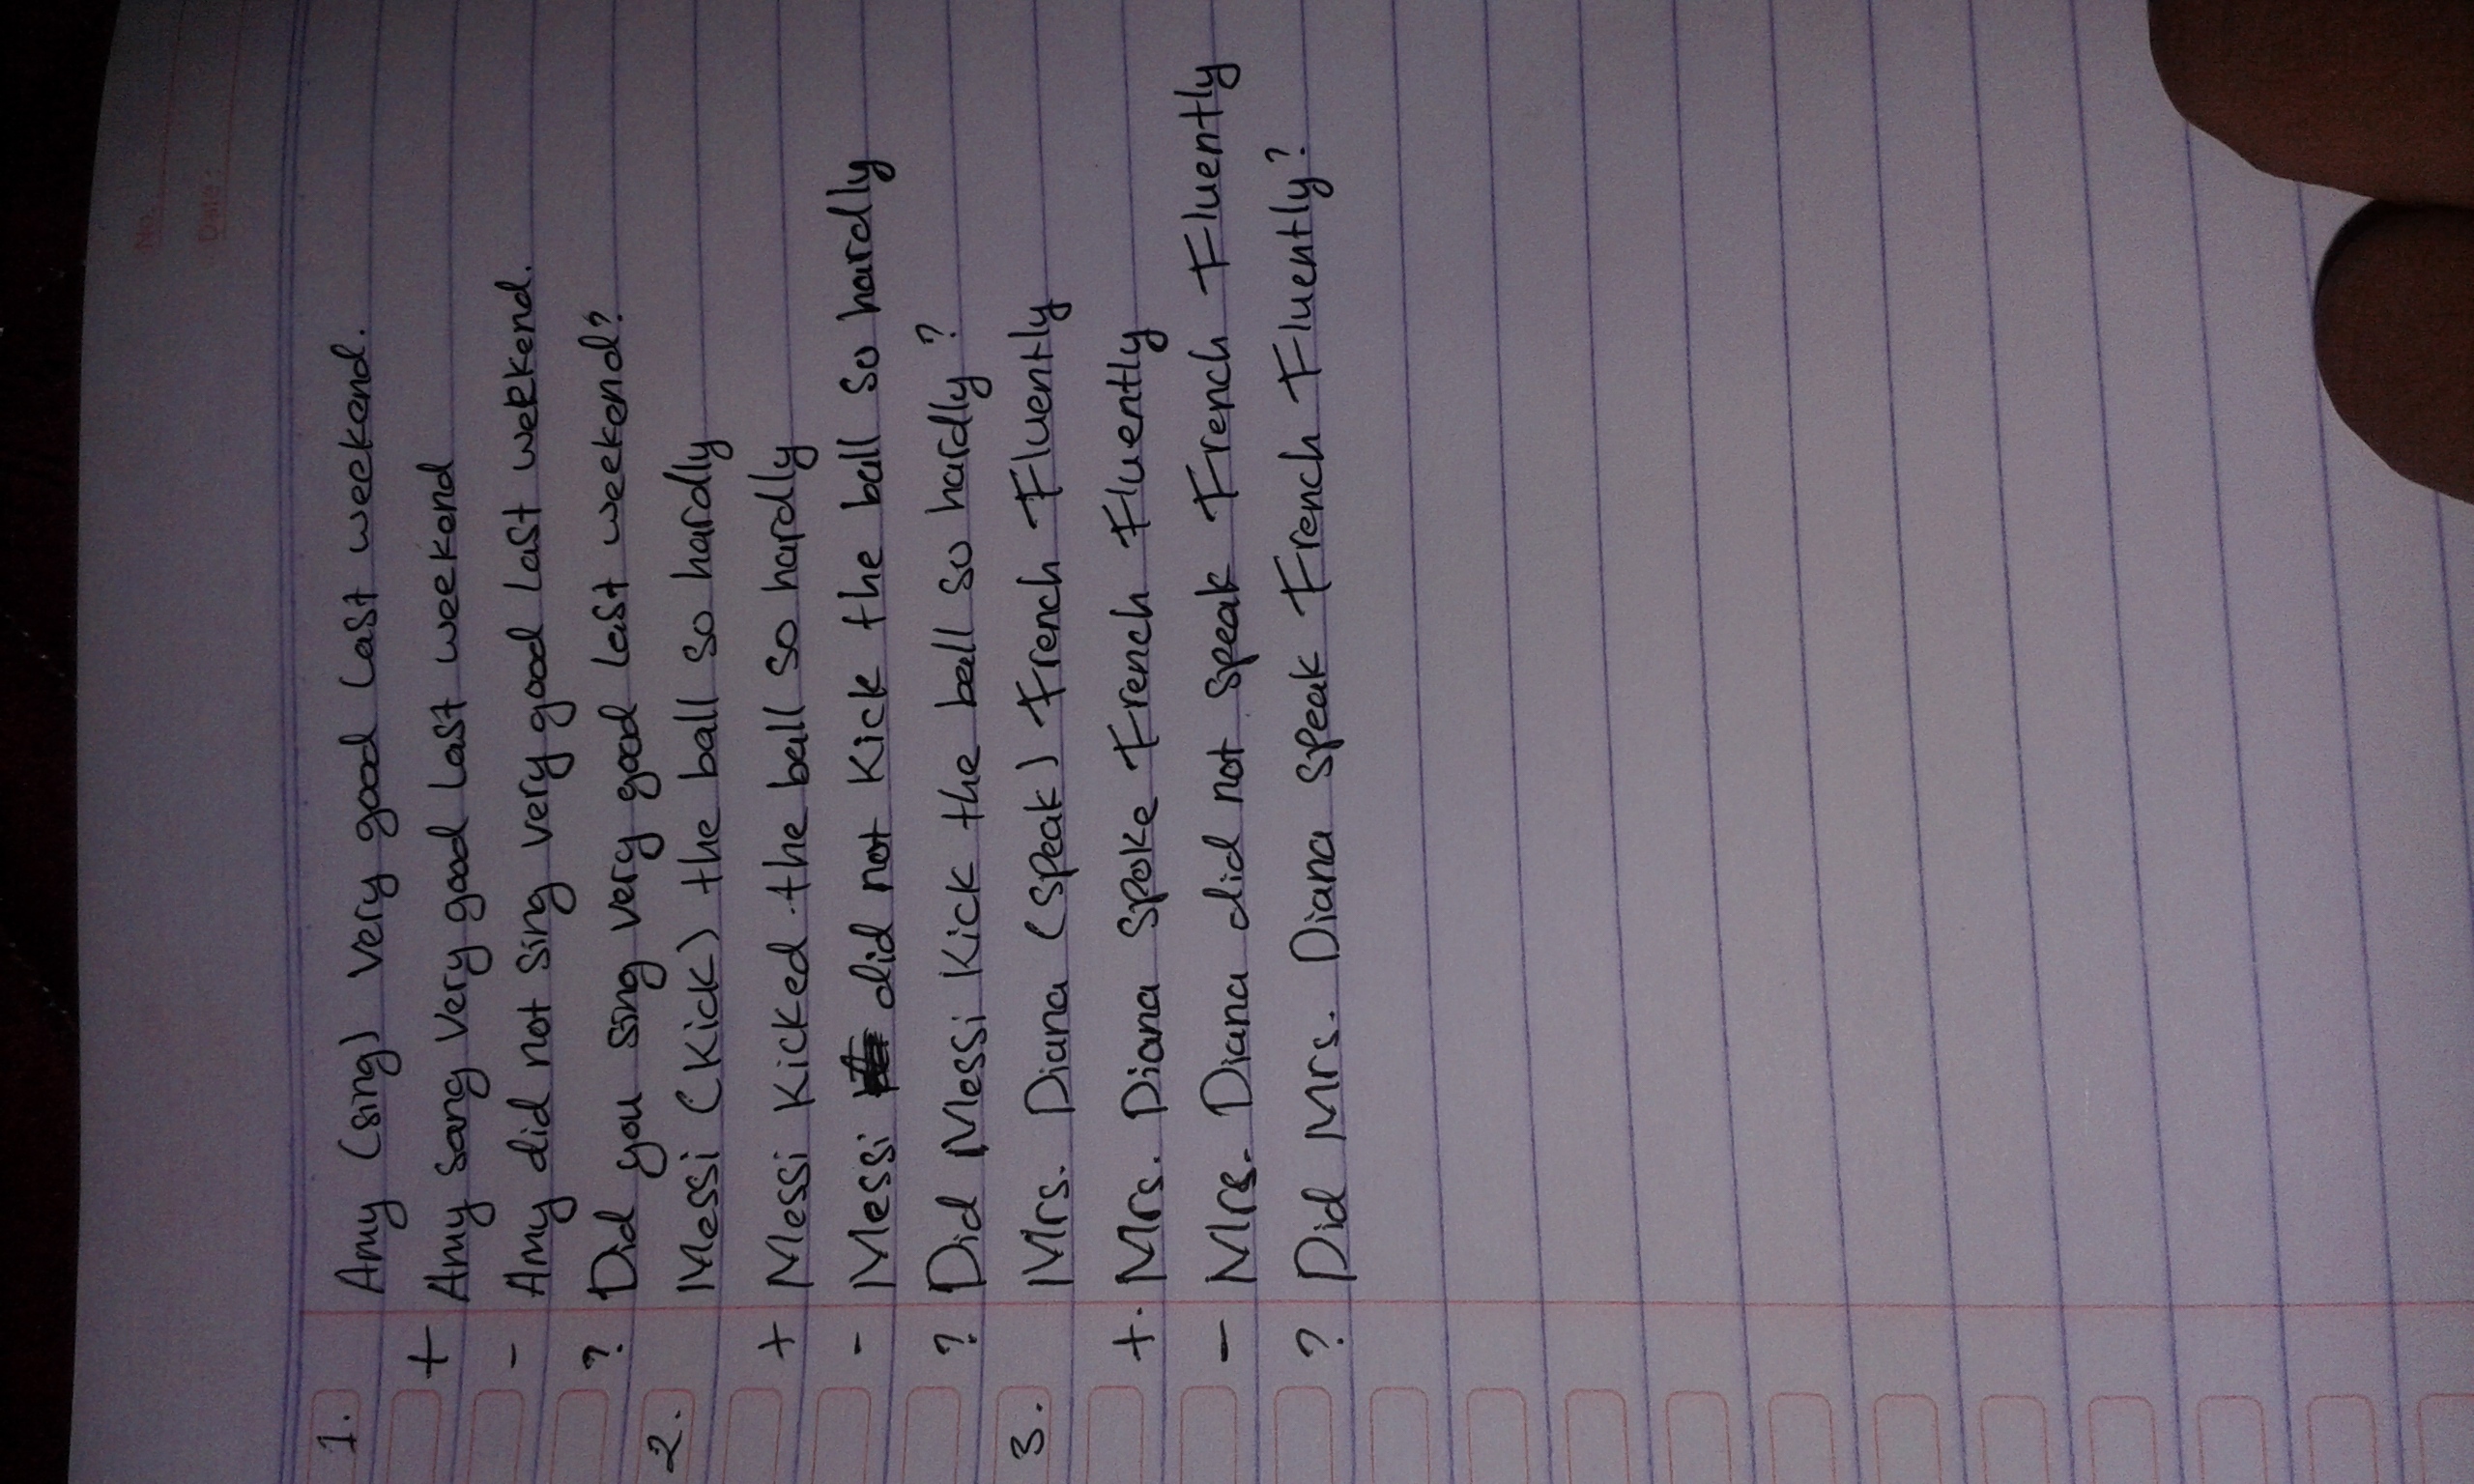 No.
Date :
1. Amy (sing) very good last weekend.
+ Amy sang very good last weekend
- Amy did not sing very good last weekend.
? Did you sing very good last weekend?
2. Messi (Kick) the ball so hardly
+ Messi Kicked the ball so hardly
- Messi did not Kick the ball so hardly
? Did Messi Kick the ball so hardly ?
3. Mrs. Diana (speak) French Fluently
+. Mrs. Diana spoke French Fluently
- Mrs. Diana did not speak French Fluently
? Did Mrs. Diana speak French Fluently?